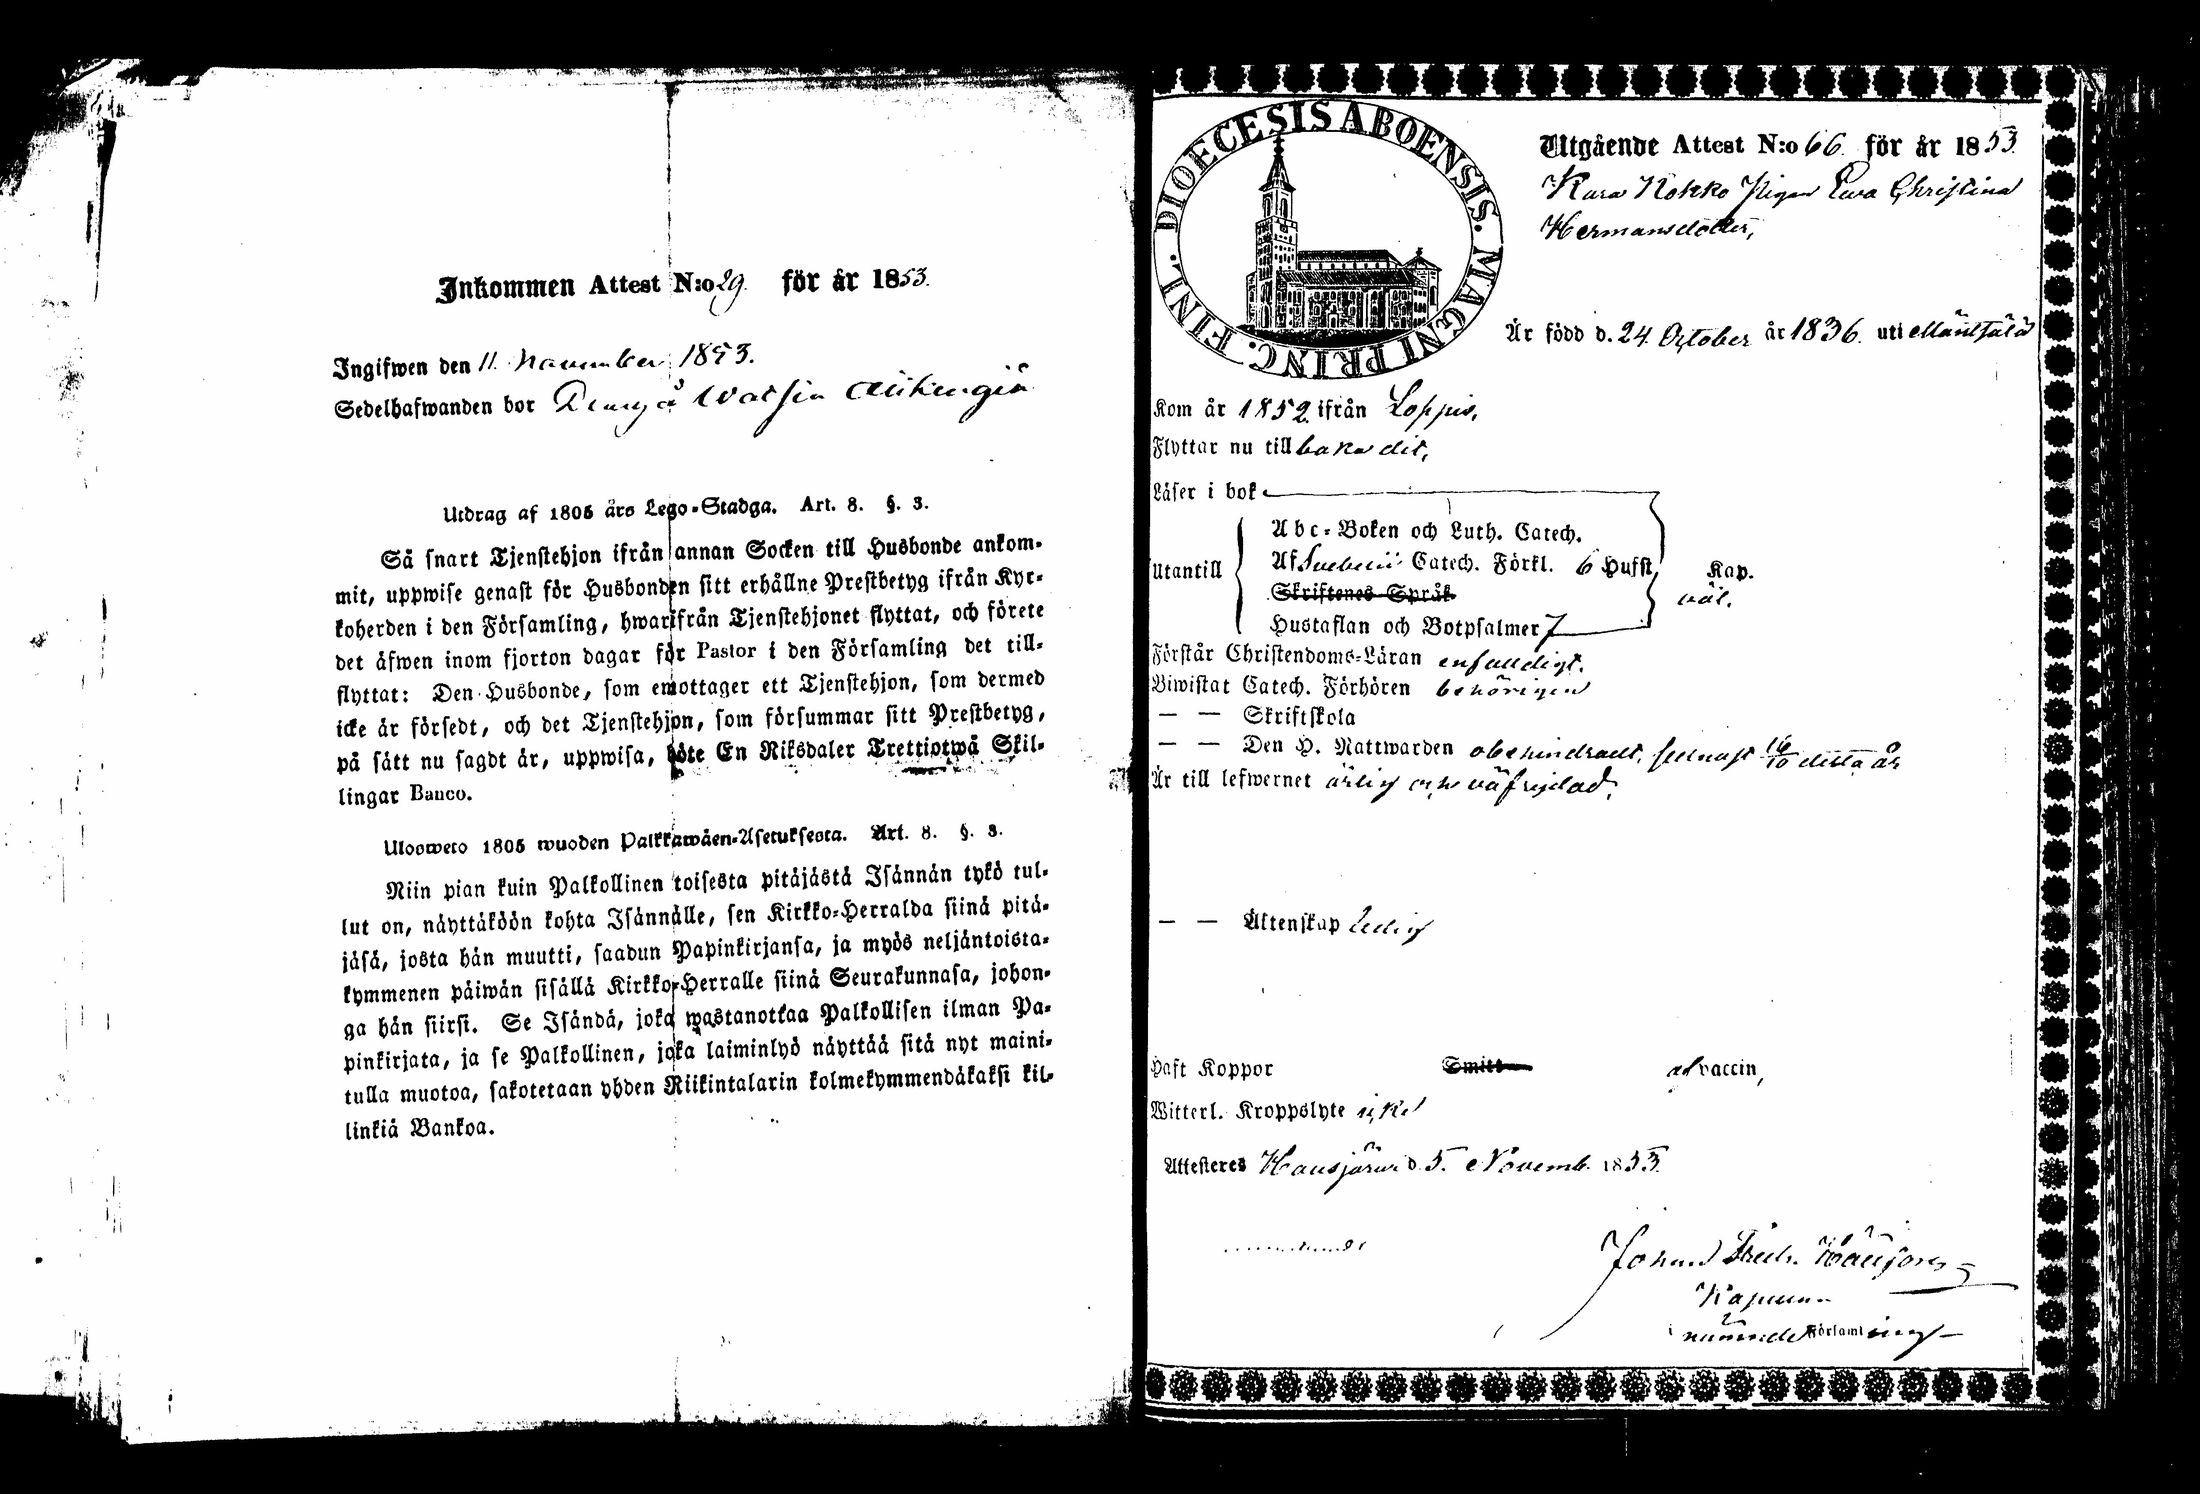 Inkommen Attest N:o 29. för år 1853.
Ingifwen den 11. November 1853.
Sedelhafwanden bor
Utdrag af 1805 års Lego-Stadga. Art. 8. §. 3.
Så snart Tjenstehjon ifrån annan Socken till Husbonde ankom-
mit, uppwise genast för Husbonden sitt erhållne Prestbetyg ifrån Kyr-
koherden i den Församling, hwarifrån Tjenstehjonet flyttat, och förete
det äfwen inom fjorton dagar för Pastor i den Församling det till-
flyttat: Den Husbonde, som emottager ett Tjenstehjon, som dermed
icke är försedt, och det Tjenstehjon, som försummar sitt Prestbetyg,
på sätt nu sagdt är, uppwisa, böte En Riksdaler Trettiotwå Skil-
lingar Banco.
Ulosweto 1805 wuoden Palkkawäen-Asetuksesta. Art. 8. §. 3.
Niin pian kuin Palkollinen toisesta pitäjästä Isännän tykö tul-
lut on, näyttäköön kohta Isännälle, sen Kirkko-Herralda siinä pitä-
jäsä, josta hän muutti, saadun Papinkirjansa, ja myös neljäntoista-
kymmenen päiwän sisällä Kirkko-Herralle siinä Seurakunnasa, johon-
ga hän siirsi. Se Isändä, joka wastanottaa Palkollisen ilman Pa-
pinkirjata, ja se Palkollinen, joka laiminlyö näyttää sitä nyt maini-
tulla muotoa, sakotetaan yhden Riikintalarin kolmekymmendäkaksi kil-
linkiä Bankoa.
DIOECESIS ABOENSIS. MAGNI PRINC. FINL.
Utgående Attest N:o 66. för år 1853.
Kara Kokko Pigan Ewa Christina
Hermansdotter,
Är född d. 24. October år 1836. uti Mäntsälä
Kom år 1852. ifrån Loppis,
Flyttar nu till baka dit,
Läser i bok
Utantill
Abc-Boken och Luth. Catech.
Af Svebelii Catech. Förkl. 6 Hufst. Kap.
Skriftenes Språk väl.
Hustaflan och Botpsalmer 7
Förstår Christendoms-Läran enfaldigt.
Biwistat Catech. Förhören behörigen
— — Skriftskola
— — Den H. Nattwarden obehindradt, sednast 16/10 detta år
Är till lefwernet ärlig och väfrejdad,
— — Äktenskap Ledig
Haft Koppor Smitt af vaccin,
Witterl. Kroppslyte icke
Attesteres Hausjärvi d. 5. Novemb. 1853.
Johan Fredr.
i nämnde Församling